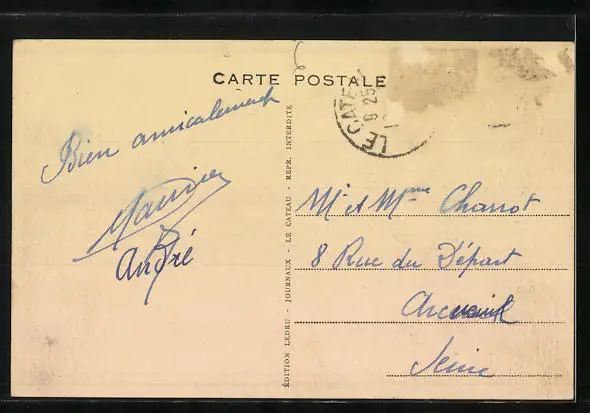 CARTE POSTALE
Bien amicalement
Maurice
André
EDITION LEDRU - JOURNAUX - LE CATEAU - REPR. INTERDITE
LE CATEAU
9 25
Mr et Mme Charrot
8 Rue du Départ
Arcueil
Seine